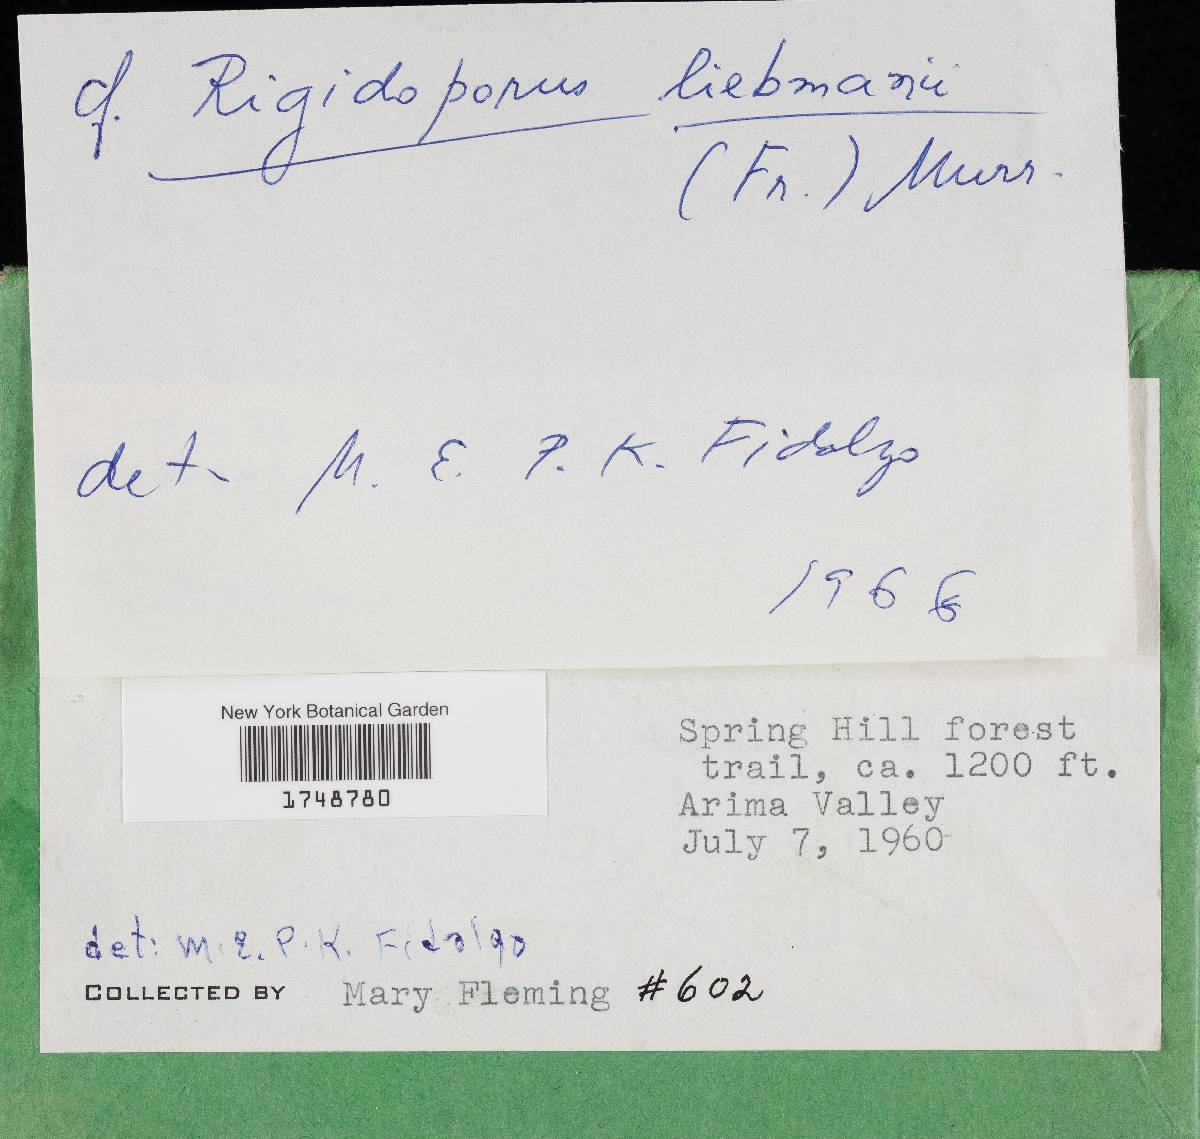 cf. Rigidoporus liebmanii
(Fr.) Murr.
det. M. E. P. K. Fidalgo
1966
New York Botanical Garden
1748780
Spring Hill forest
trail, ca. 1200 ft.
Arima Valley
July 7, 1960
det: M. E. P. K. Fidalgo
COLLECTED BY Mary Fleming #602